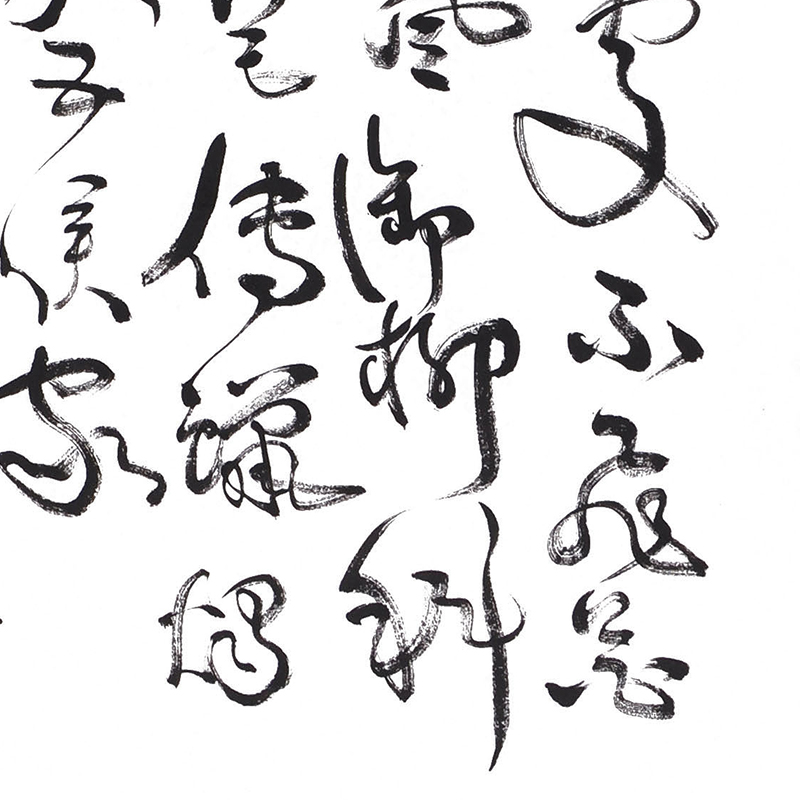 處不飛花
風御柳斜
傳蠟燭
五侯家